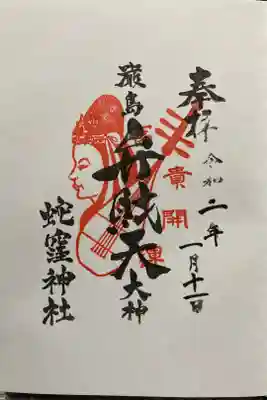 奉拝
令和二年
一月十一日
貴
開運
巌島
弁財天
大神
蛇窪神社